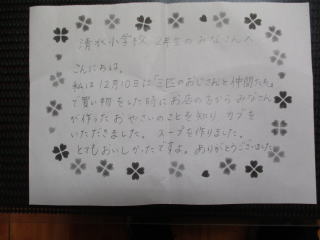 清水小学校 2年生のみなさんへ
こんにちは。
私は12月10日に「三匹のおじさんと仲間たち」
で買い物をした時にお店の方からみなさん
が作ったおやさいのことを知りカブを
いただきました。スープを作りました。
とてもおいしかったですよ。ありがとうございました。